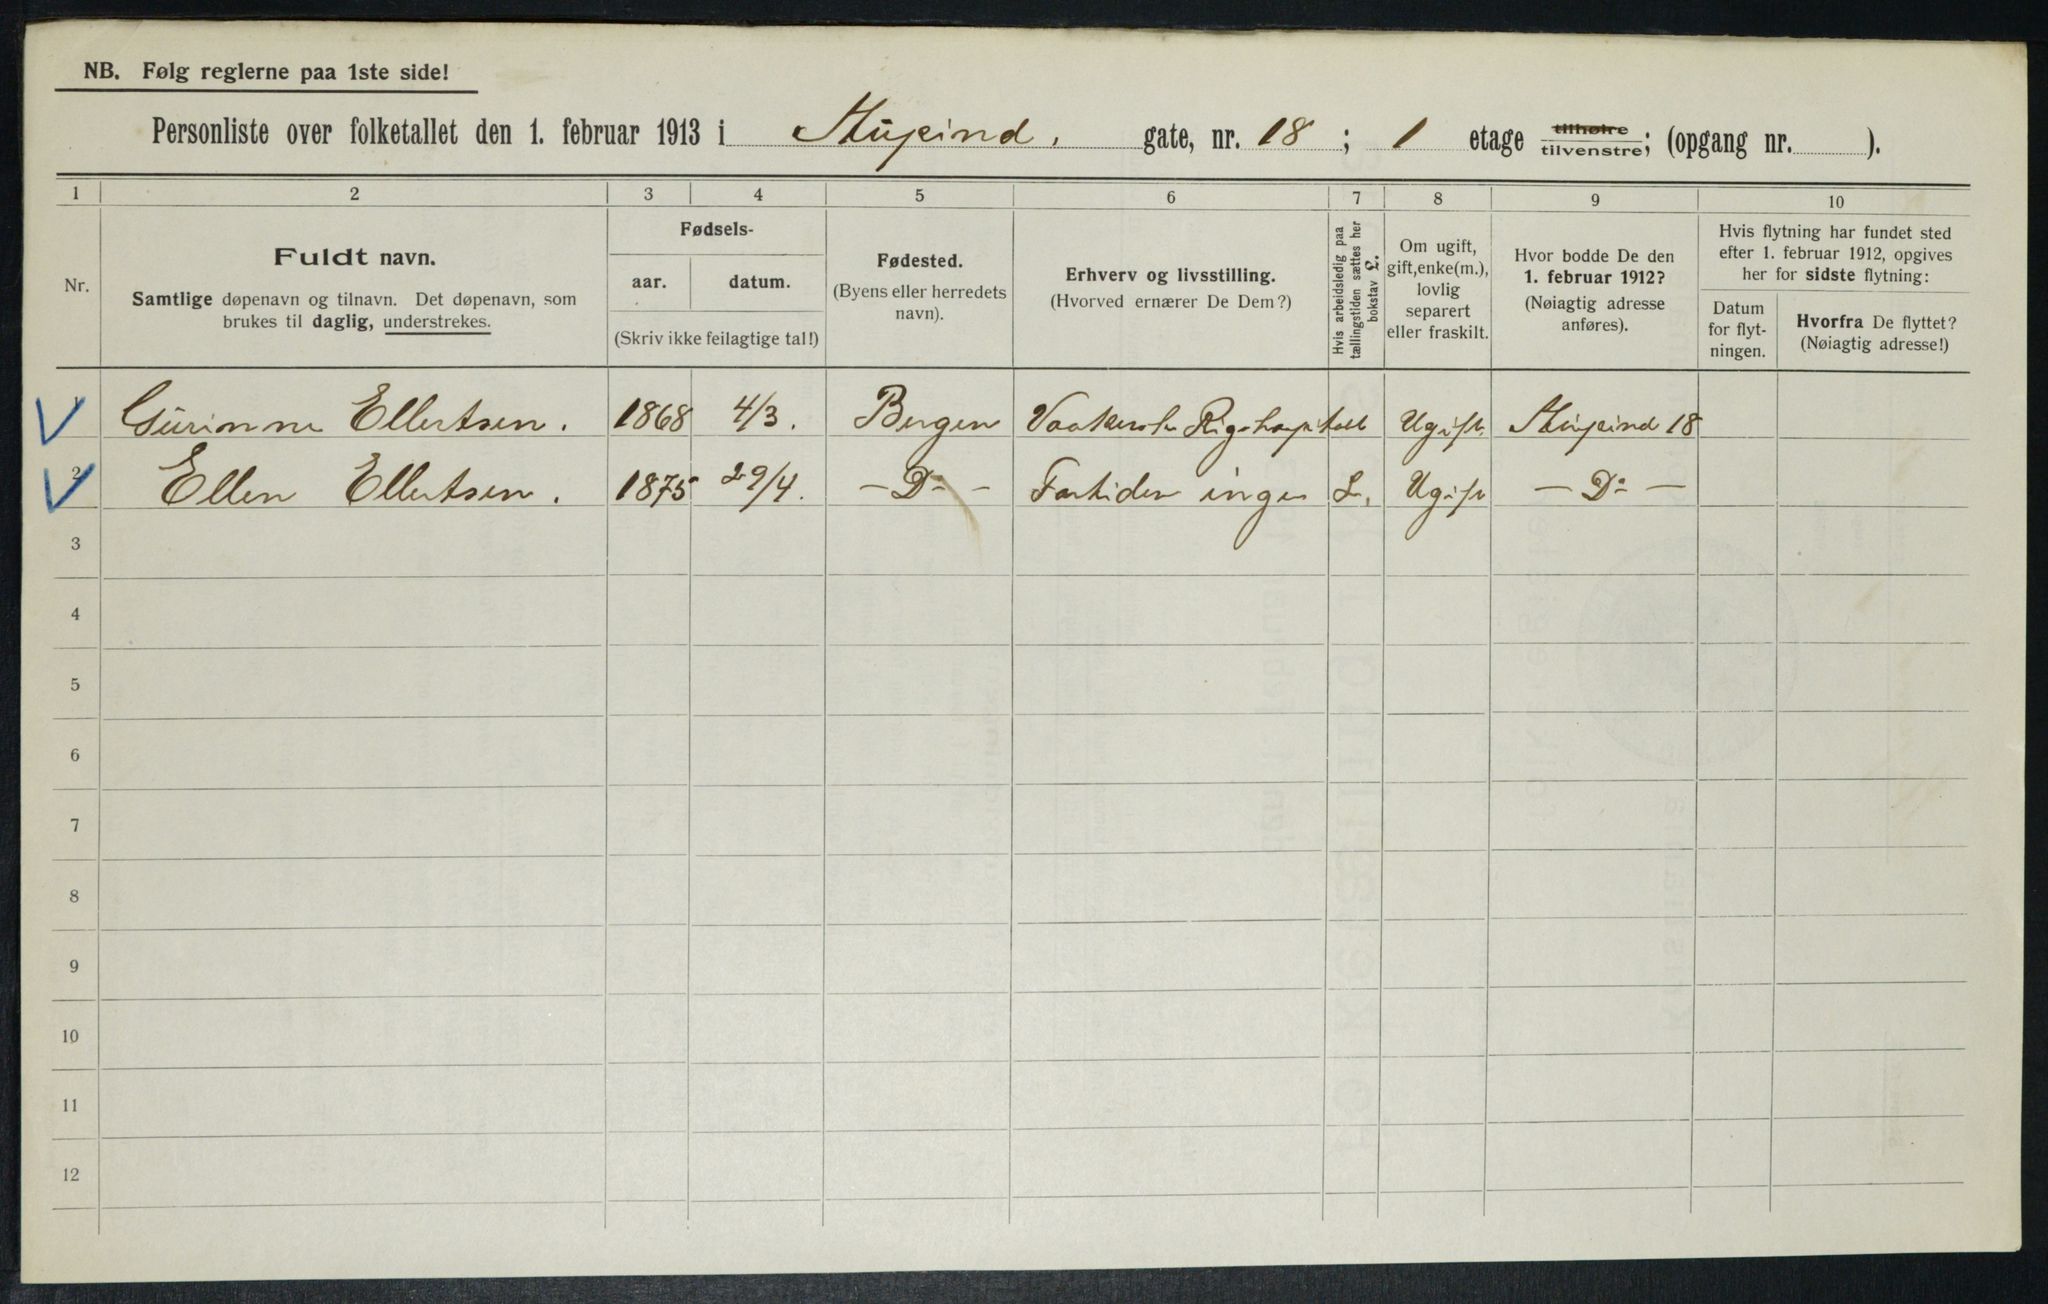 NB. Følg reglerne paa 1ste side!
Personliste over folketallet den 1. februar 1913 i Stupind, gate, nr. 18 ; 1 etage tilhøire tilvenstre; (opgang nr. ).
1 2 3 4 5 6 7 8 9 10
Nr.
Fuldt navn.
Samtlige døpenavn og tilnavn. Det døpenavn, som
brukes til daglig, understrekes.
Fødsels-
aar. datum.
(Skriv ikke feilagtige tal!)
Fødested.
(Byens eller herredets
navn).
Erhverv og livsstilling.
(Hvorved ernærer De Dem?)
Hvis arbeidsledig paa
tællingstiden sættes her
bokstav £.
Om ugift,
gift, enke(m.),
lovlig
separert
eller fraskilt.
Hvor bodde De den
1. februar 1912?
(Nøiagtig adresse
anføres).
Hvis flytning har fundet sted
efter 1. februar 1912, opgives
her for sidste flytning:
Datum
for flyt-
ningen.
Hvorfra De flyttet?
(Nøiagtig adresse!)
1 Ellertsen. 1868 4/3. Bergen Rigshospitalet Ugift. 18
2 Ellen Ellertsen. 1875 29/4. — Do — Fortiden ingen L. Ugift — Do —
3
4
5
6
7
8
9
10
11
12